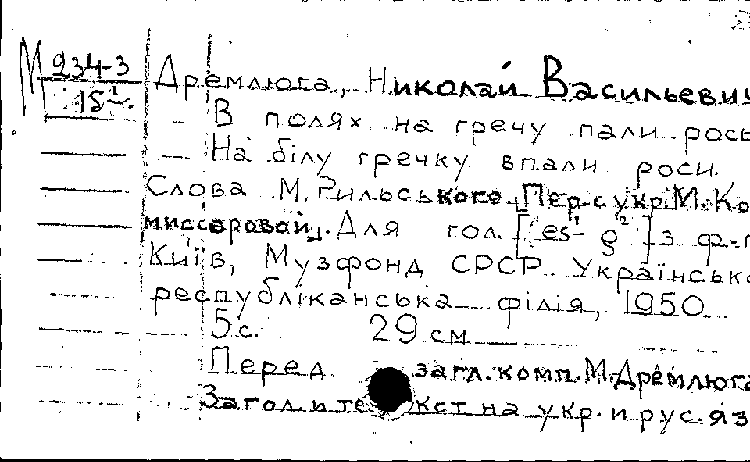 М 234-3
15
Дремлюга, Николай Васильевич
В полях на гречу пали рось
На білу гречку впали роси.
Слова М. Рильського [Пер. с укр. М. Ко
миссаровой]. Для гол. [es¹- g²] з ф.-п
Київ, Музфонд СРСР. Українська
республіканська філія, 1950
5 с. 29 см
Перед загл. комп. М. Дремлюга
Загол. и текст на укр. и рус. яз